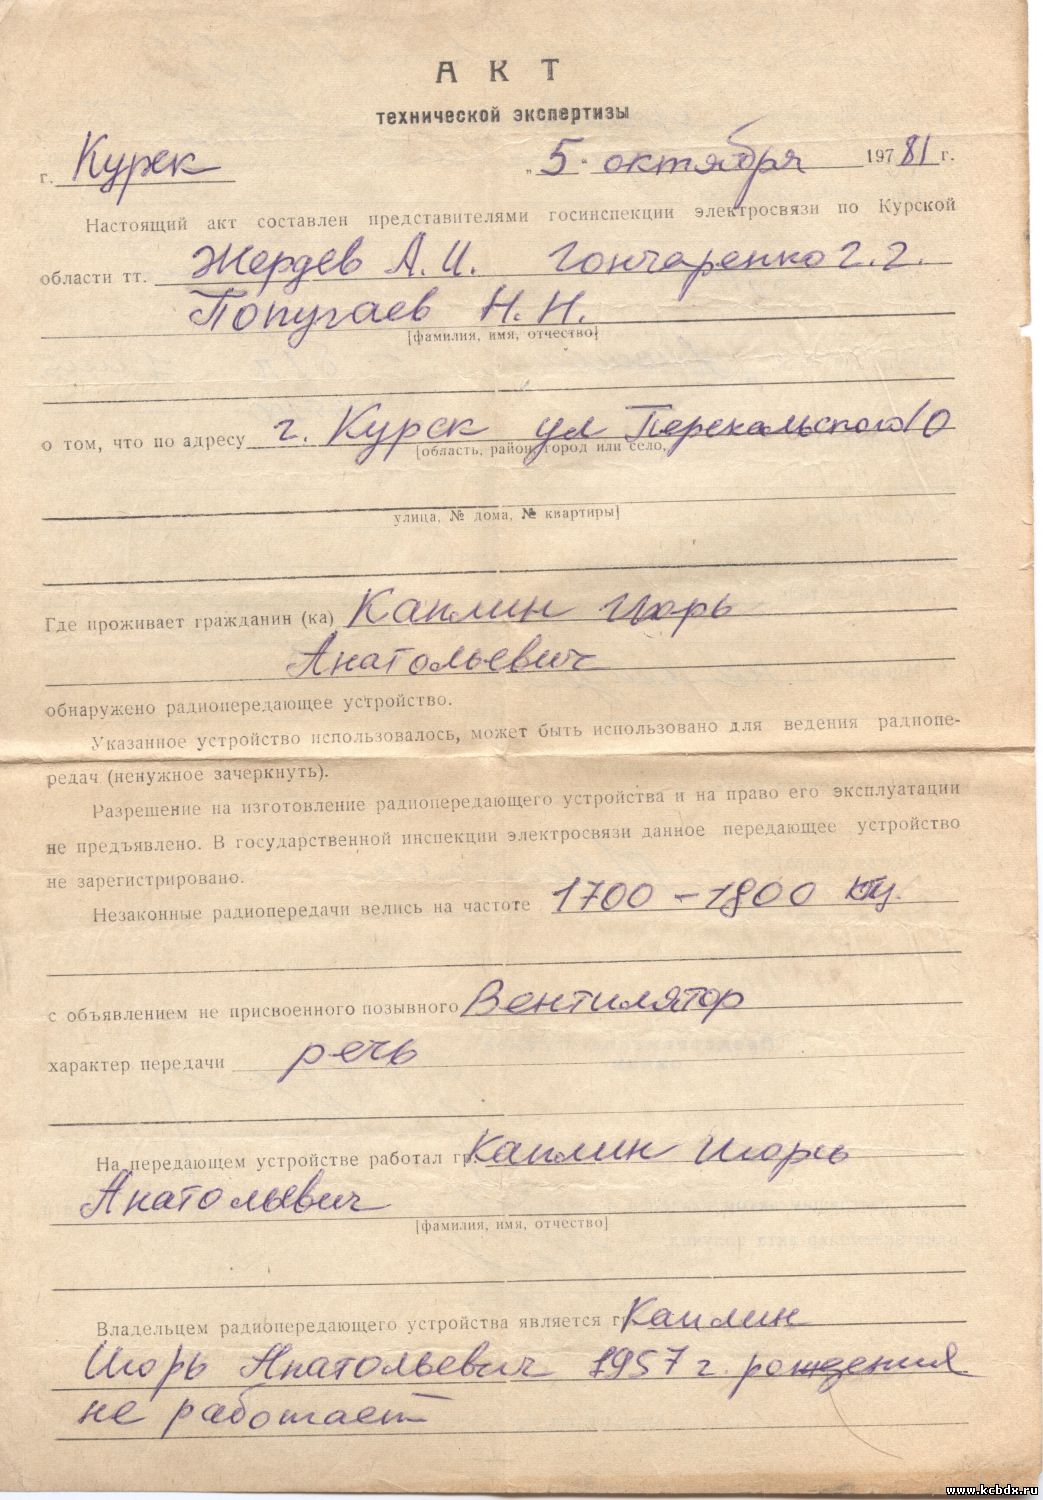 АКТ
технической экспертизы
г. Курск „5" октября 197 81 г.
Настоящий акт составлен представителями госинспекции электросвязи по Курской
области тт. Жердев А.И. Гончаренко Г.Г.
Попугаев Н.Н.
[фамилия, имя, отчество]
о том, что по адресу г. Курск ул Перекальского 10
[область, район, город или село,
улица, № дома, № квартиры]
Где проживает гражданин (ка) Каплин Игорь
Анатольевич
обнаружено радиопередающее устройство.
Указанное устройство использовалось, может быть использовано для ведения радиопе-
редач (ненужное зачеркнуть).
Разрешение на изготовление радиопередающего устройства и на право его эксплуатации
не предъявлено. В государственной инспекции электросвязи данное передающее устройство
не зарегистрировано.
Незаконные радиопередачи велись на частоте 1700 – 1800 кГц.
с объявлением не присвоенного позывного Вентилятор
характер передачи речь
На передающем устройстве работал гр. Каплин Игорь
Анатольевич
[фамилия, имя, отчество]
Владельцем радиопередающего устройства является г Каплин
Игорь Анатольевич 1957 г. рождения
не работает
www.kcbdx.ru